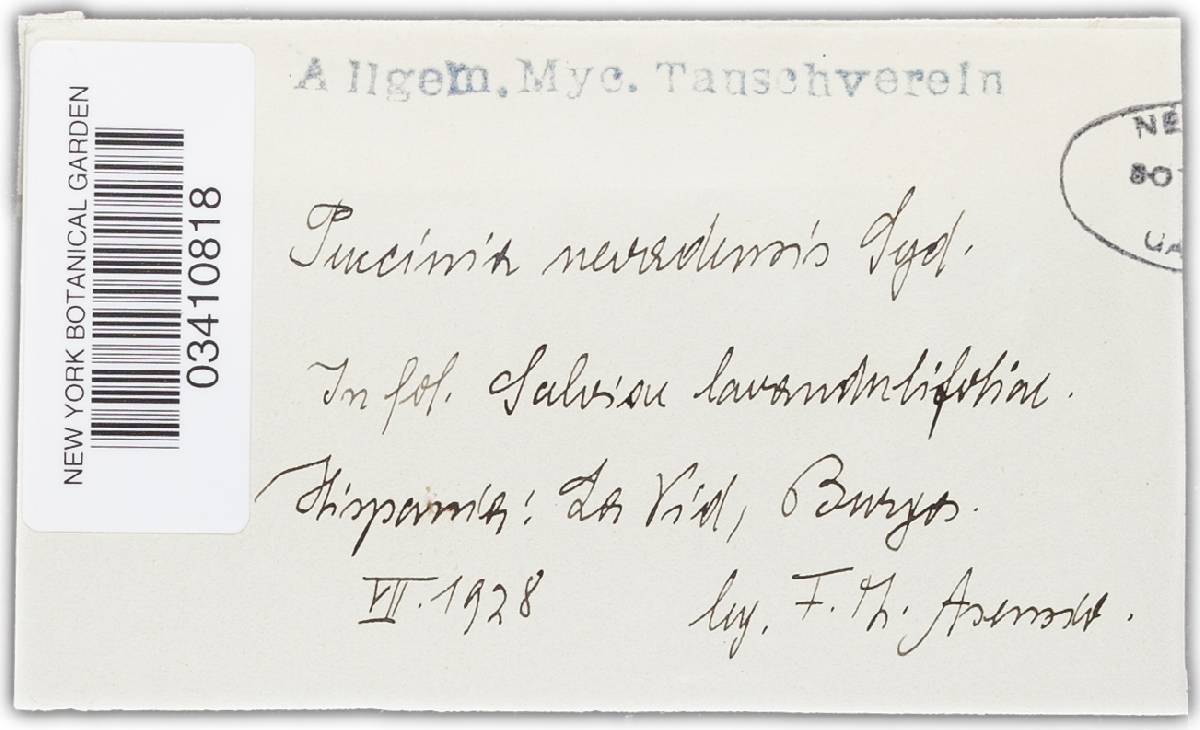 Allgem. Myc. Tauschverein
NE
BOT
GA
NEW YORK BOTANICAL GARDEN
03410818
Puccinia nevadensis Syd.
In fol. Salviae lavandulifoliae.
Hispania: La Vid, Burgos.
VII. 1928 leg. F. M. Asensio.